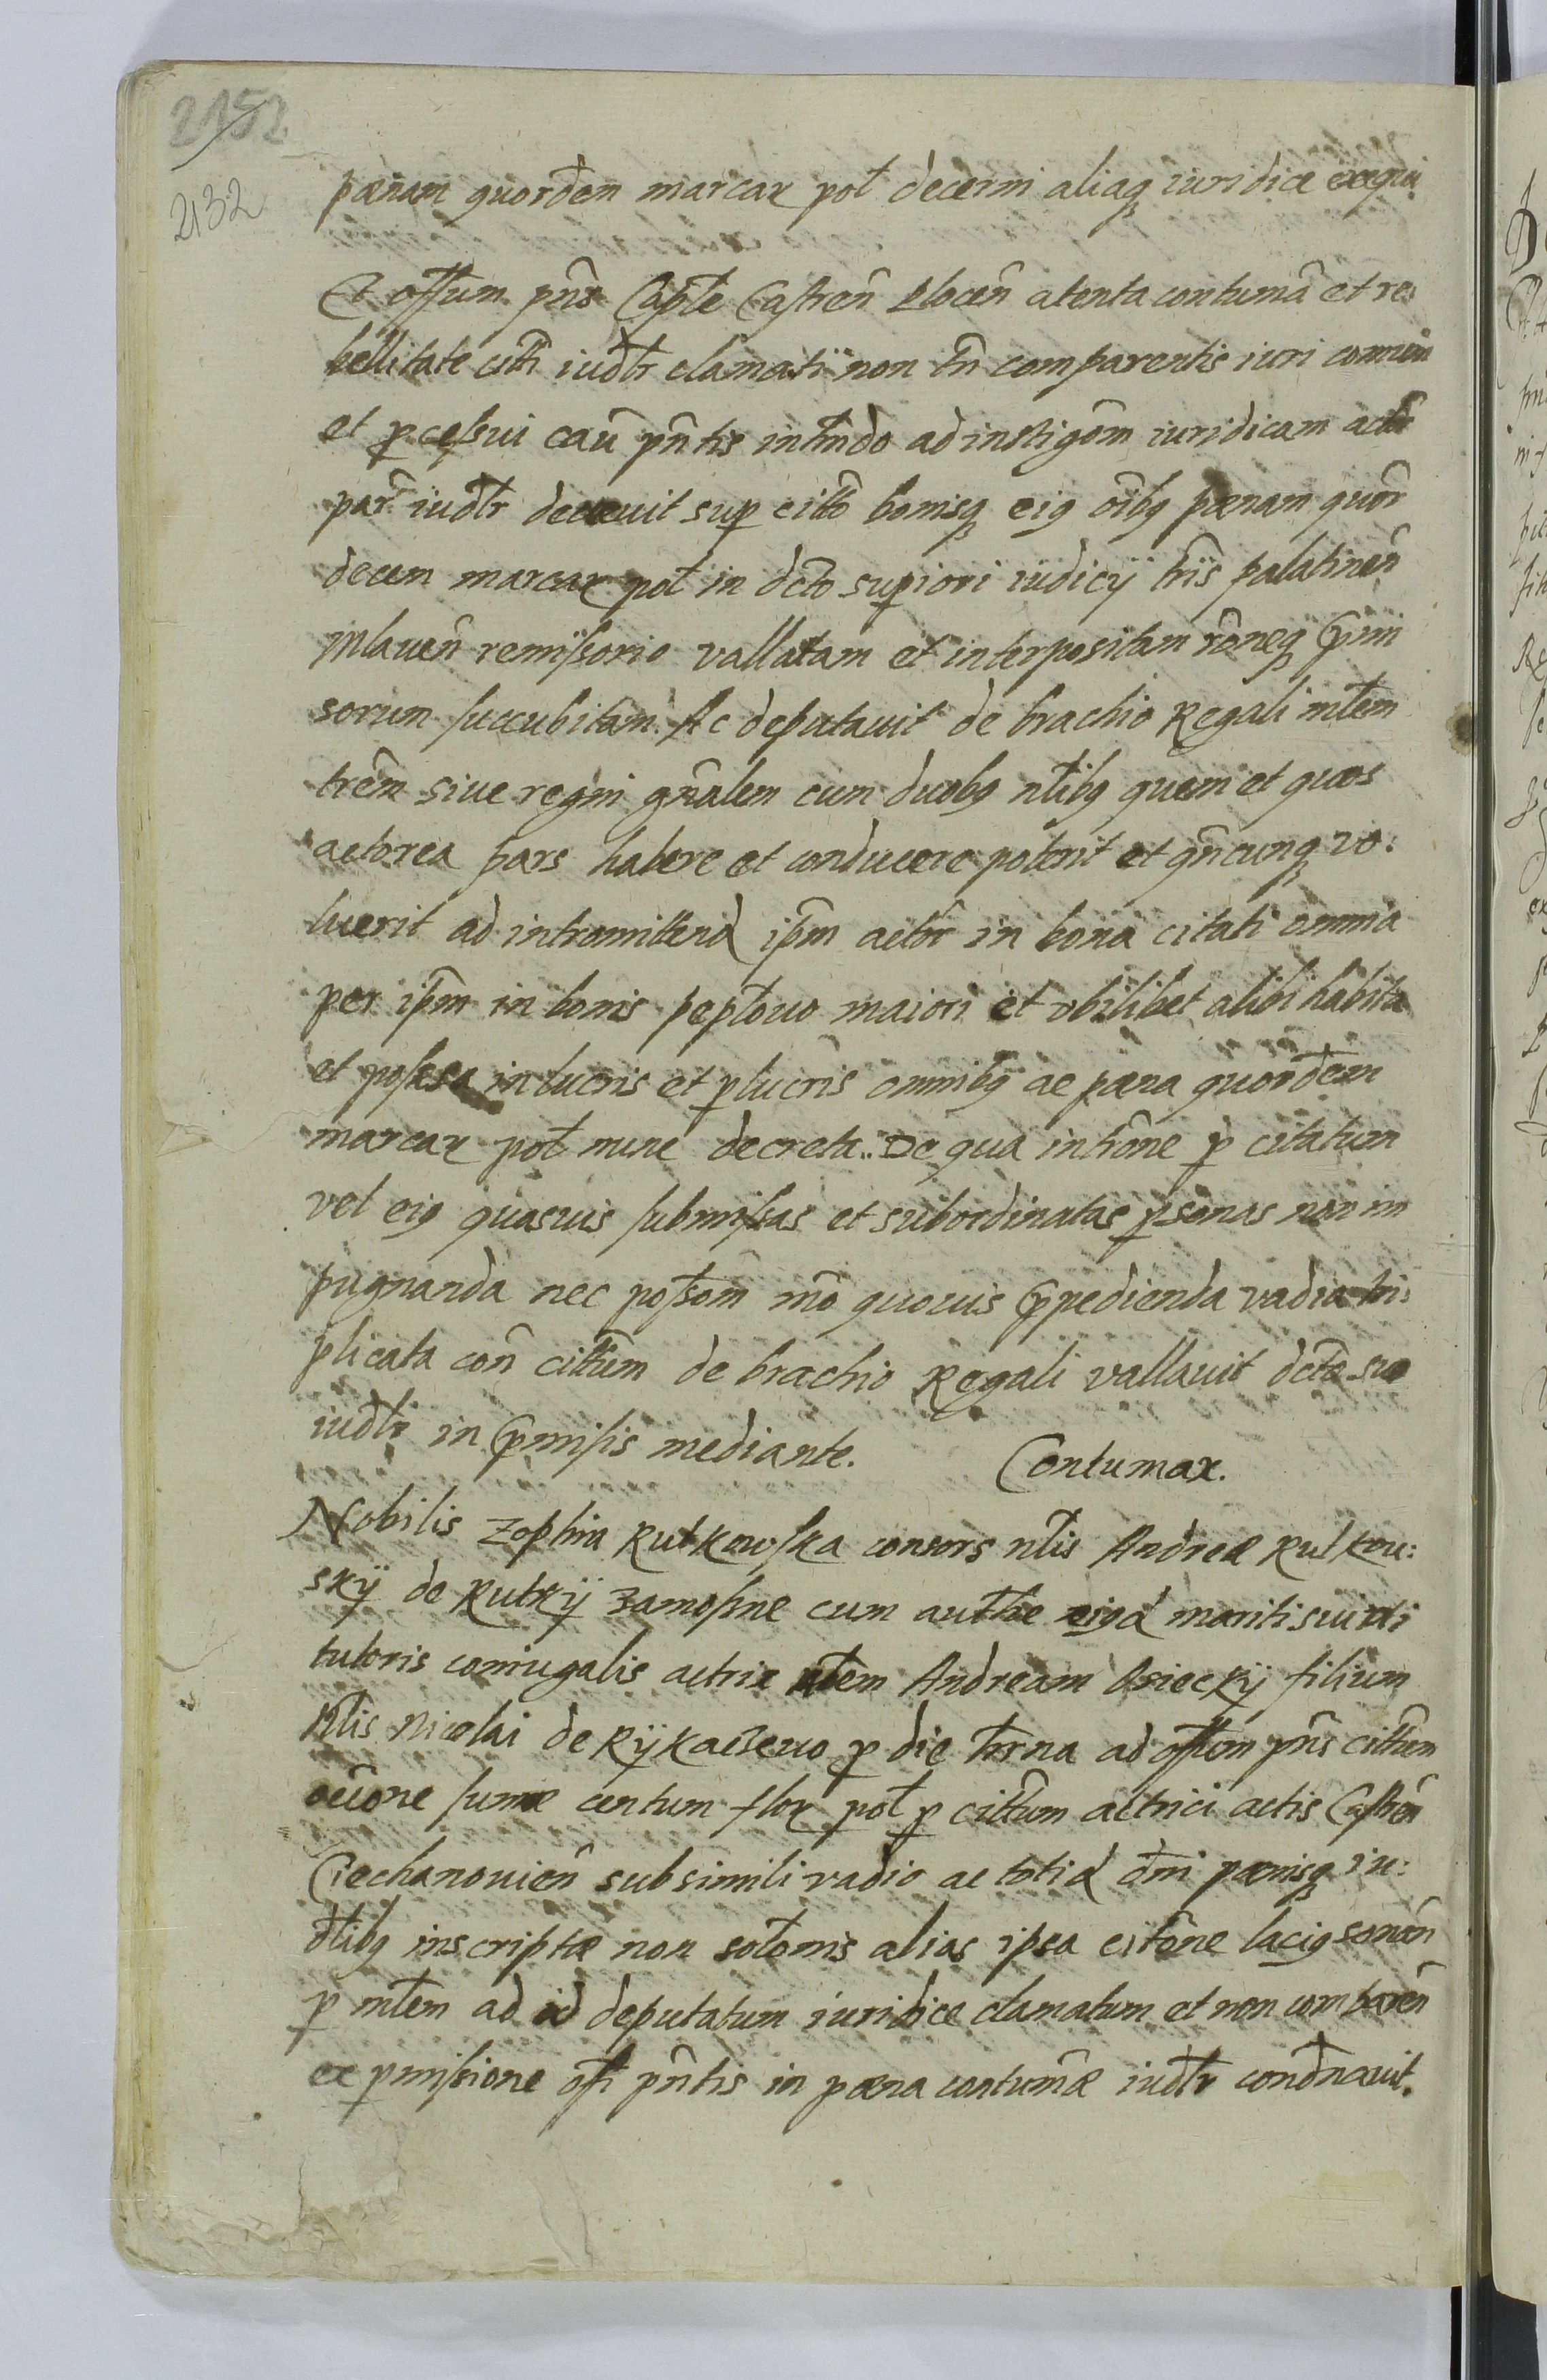 2152
2132
pænam quordem marcar pot decerni aliaq iuridice exequi
Et offum pñs Caple Castreñ Ploceñ atenta contumã et re
bellitate citti iudtr clamati non tñ comparentis iuri comuni
et pcessui cauã pñtis intendo ad instigõm iuridicam actor
par iudtr decreuit sup citto bonisq eig õibq pænam quor
decem marcar pot in dcto supiori iudicÿ tris palatineñ
Mlaueñ remissorio vallatam et interpositam rõneq pmi
sorum succubitam. Ac deputauit de brachio Regali mtem
trem siue regni gñalem cum duobq ntibq quem et quos
actorea pars habere et conducere poterit et qñcunq vo:
luerit ad intromittend ipm actor in bona citati omnia
per ipm in bonis peptowo maiori et vbilibet alibi habita
et possessa in lucris et plucris omnibq ac pæna quordecem
marcar pot nunc decreta. De qua intrõne p citatum
vel eig quasuis submissas et subordinatas psonas non im
pugnanda nec possõm mõ quouis ppedienda vadia tri:
plicata coñ cittum de brachio Regali vallauit dcto suo
iudtr in pmissis mediante. Contumax.
Nobilis Zophia Rutkowska consors ntis Andreæ Rutkow:
skÿ de Rutkÿ Zamoshne cum authe eigd mariti sui uti
tutoris coniugalis actrix ntem Andream Osieckÿ filium
Ntis Nicolai de Rÿkaczewo p die hrna ad offum pñs cittum
ociõne sumæ centum flor pot p cittum actrici actis Castreñ
Ciechanouieñ sub simili vadio ac totid dñi pænisq iu:
dtibq inscriptæ non sotonis alias ipsa citõne lacig sonañ
p mtem ad id deputatum iuridice clamatum et non compareñ
ex pmissione offi pñtis in pæna contumæ iudtr condnauit.